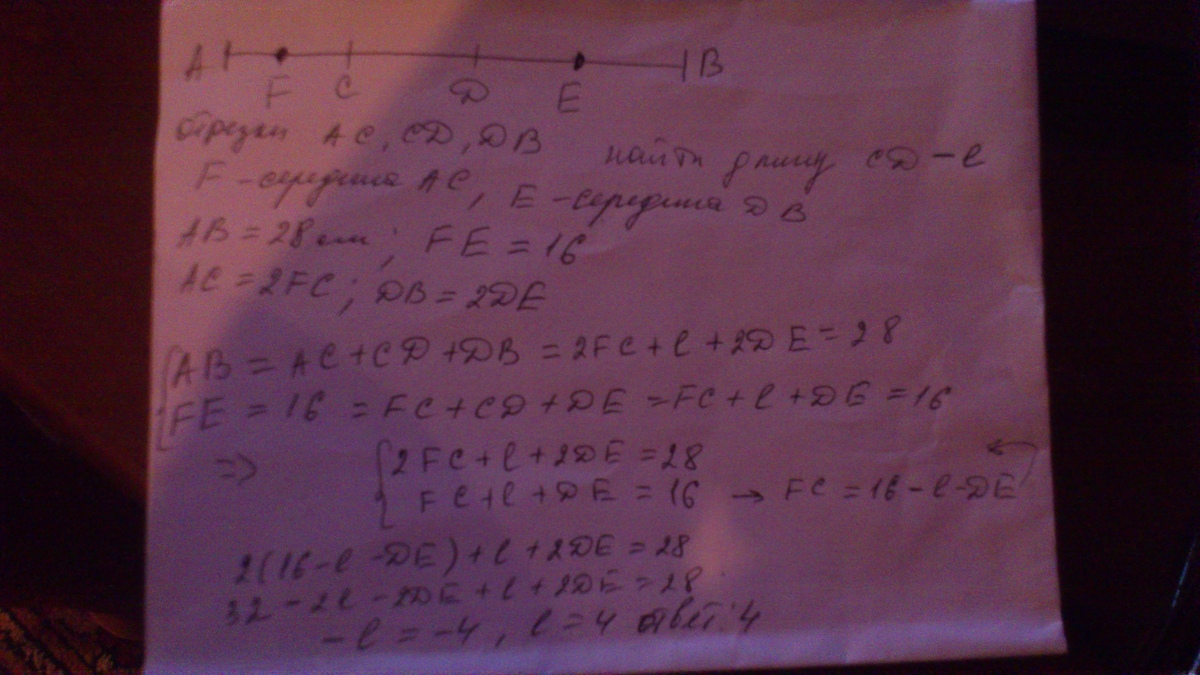 A F C D E B
отрезки AC, CD, DB найти длину CD - l
F - середина AC, E - середина DB
AB = 28 см; FE = 16
AC = 2FC; DB = 2DE
AB = AC + CD + DB = 2FC + l + 2DE = 28
FE = 16 = FC + CD + DE = FC + l + DE = 16
=> { 2FC + l + 2DE = 28
FC + l + DE = 16 → FC = 16 - l - DE
2(16 - l - DE) + l + 2DE = 28
32 - 2l - 2DE + l + 2DE = 28
-l = -4, l = 4 ответ: 4